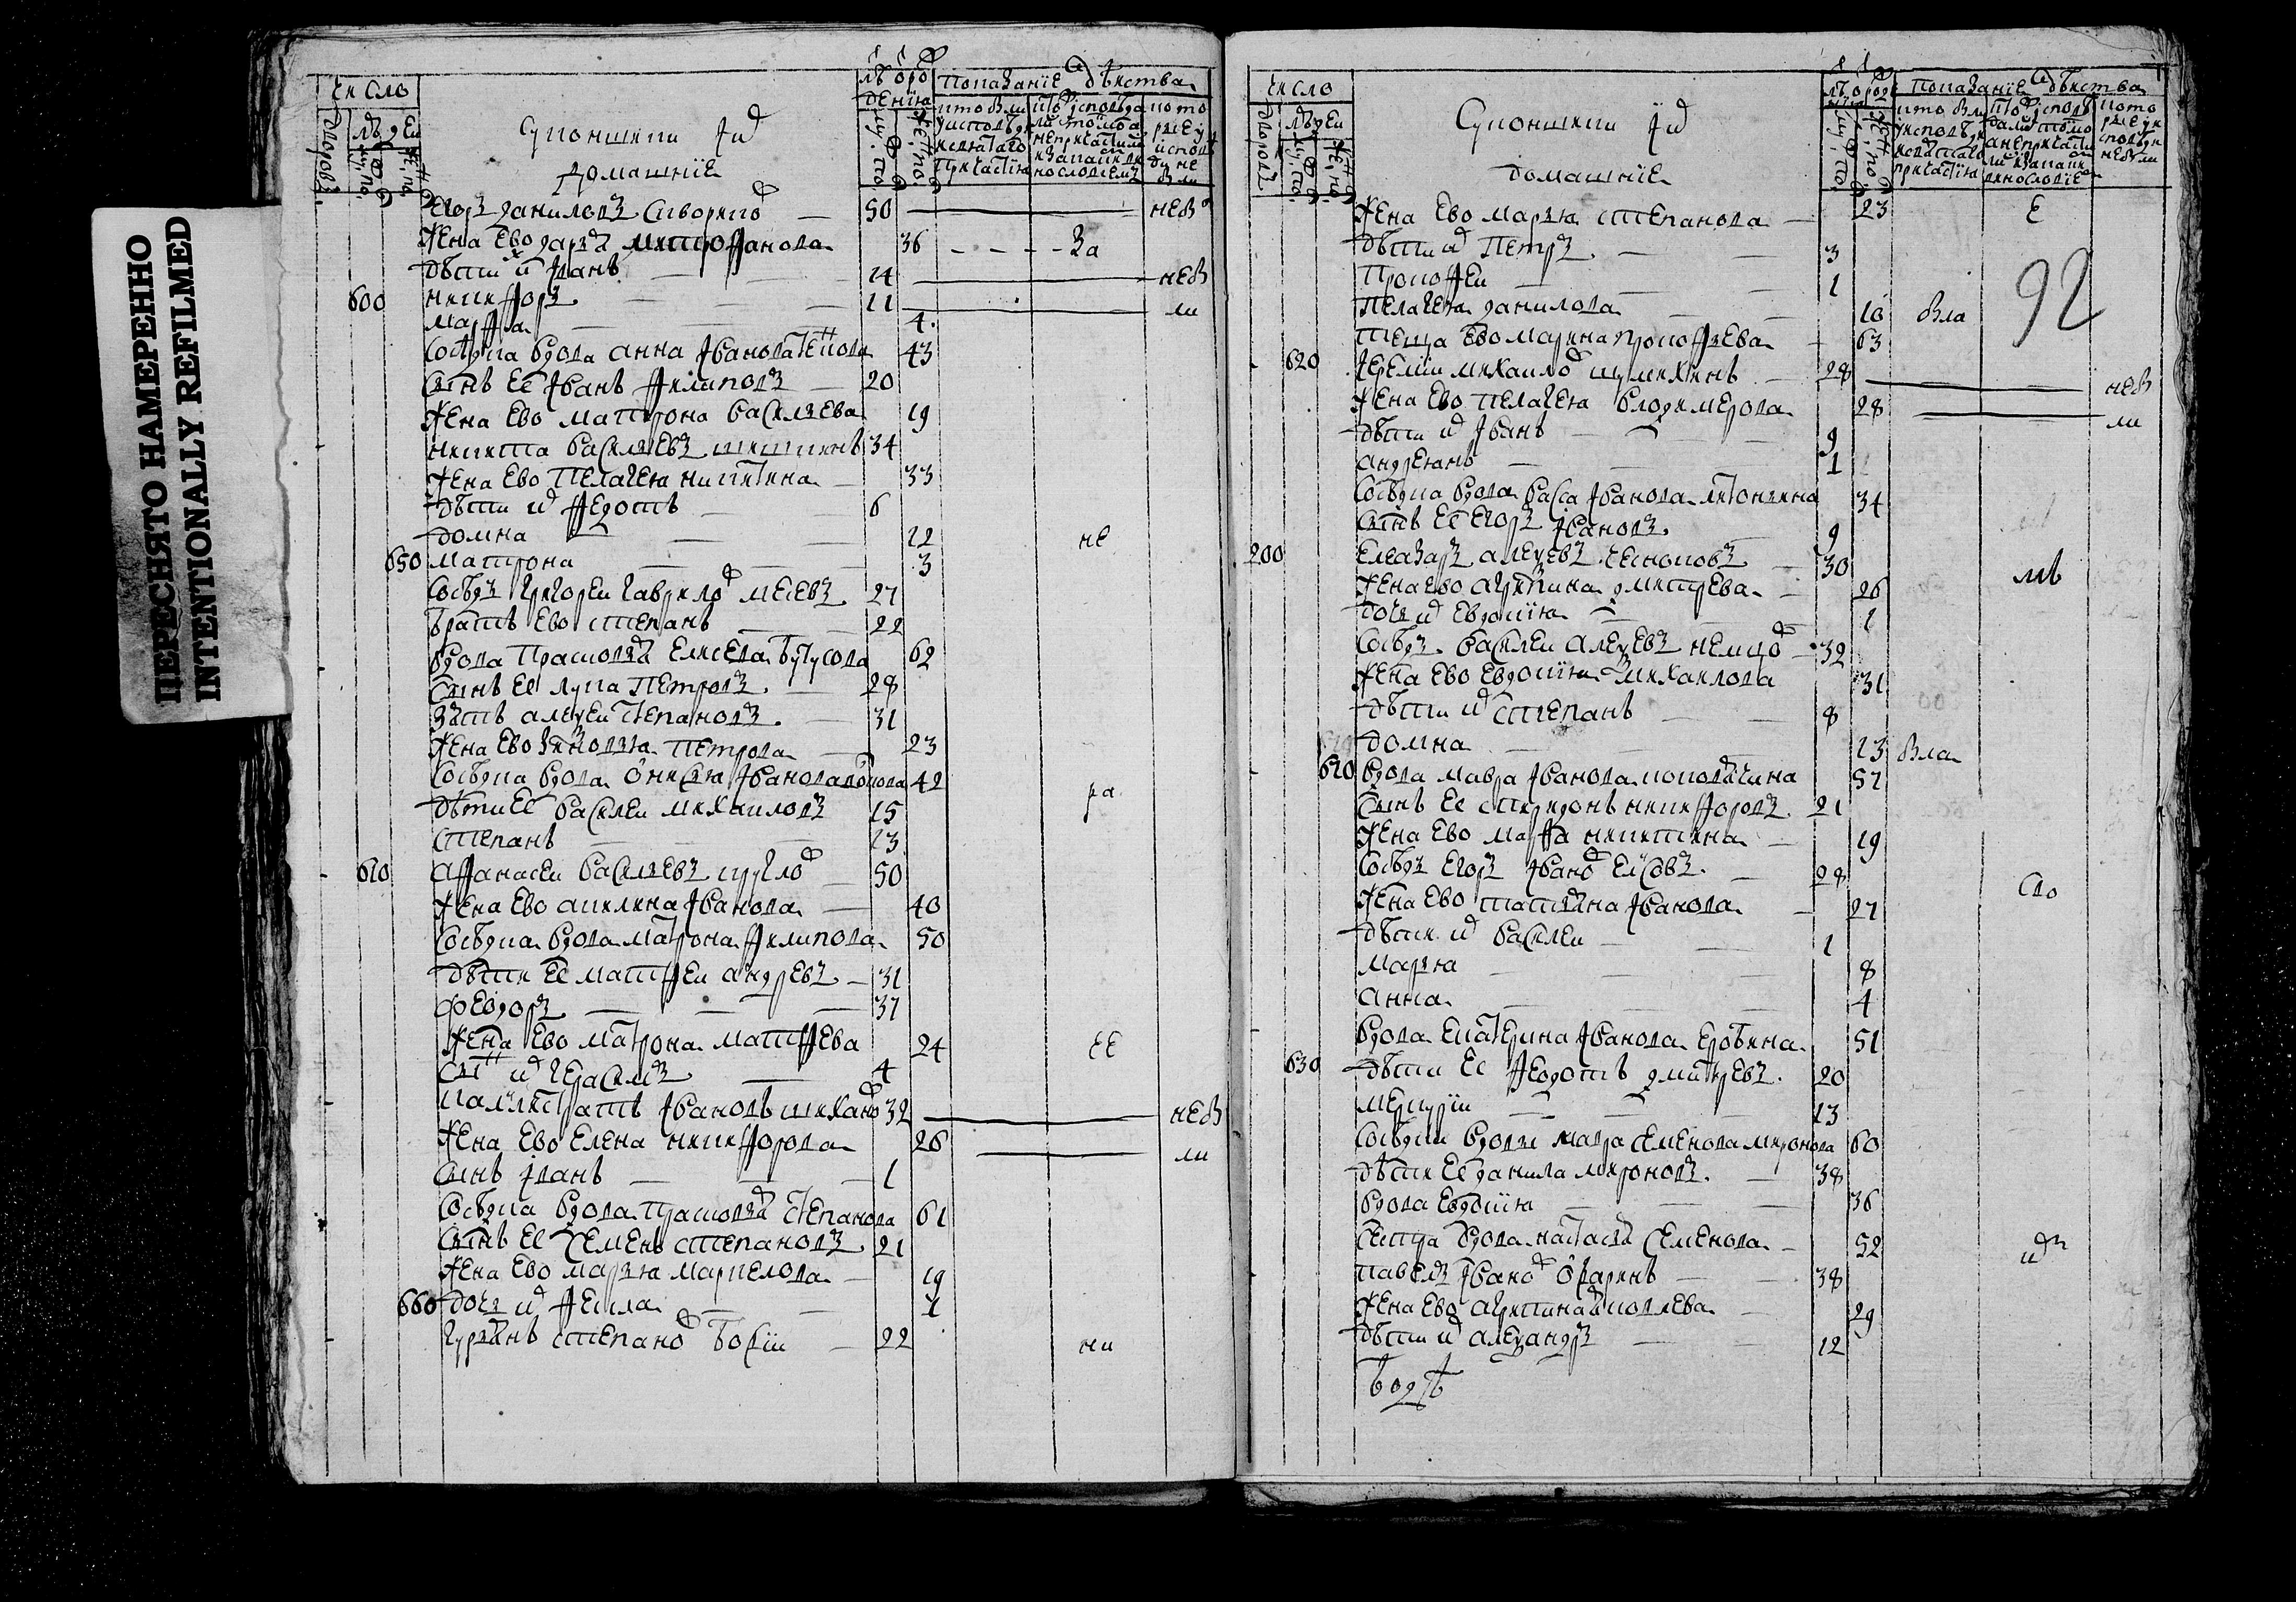 ПЕРЕСНЯТО НАМЕРЕННО
INTENTIONALLY REFILMED
число
домашніе
показаніе действа
Егоръ даниловъ 50 нев
жена ево дарья митрофанова 36 за
дети их иванъ 14 нев
600 никифоръ 11 ли
марфа 4
соседка вдова анна иванова 43
сынъ ее иванъ филиповъ 20
жена ево матрона василева 19
никита василевъ шишкинъ 34
жена ево пелагея никитина 33
дети их федотъ 6
домна 12 не
650 матрона 3
соседъ григореи гаврилов 27
братъ ево степанъ 22
вдова прасковя елисева бутусова 62
сынъ ее лука петровъ 28
зять алексеи степановъ 31
жена ево зиновья петрова 23
соседка вдова онисья иванова 42 ра
дети ее василеи михаиловъ 15
степанъ 13
610 афанасеи василевъ круглов 50
жена ево акилина иванова 40
соседка вдова матрона филипова 50
дети ее матфеи андревъ 31
федоръ 37
жена ево матрона матфева 24 ее
сынъ их герасимъ 4
калистратъ ивановъ 32 нев
жена ево елена никифорова 26 ли
сынъ иванъ 1
соседка вдова прасковя степанова 61
сынъ ее семенъ степановъ 21
жена ево марья маркелова 19
660 дочь их фекла 1
гурьянъ степанов босіи 22 ни
число
домашніе
показаніе действа
жена ево марья степанова 23 е
дети их петръ 3
92
прокофеи 1
пелагея данилова 10 вла
теща ево марина прокофьева 63
620 иеремии михаилов шумихинъ 28 нев
жена ево пелагея владимерова 28 ли
дети их иванъ 9
андреянъ 1
соседка вдова васса иванова 34
сынъ ее егоръ ивановъ 9
200 елеазаръ алексевъ чесноковъ 30 мъ
жена ево агрипина дмитрева 26
дочь их евдокия 1
соседъ василеи алексевъ немцов 32
жена ево евдокия михаилова 31
дети их степанъ 8
домна 13 вла
670 вдова мавра иванова 57
сынъ ее спиридонъ никифоровъ 21
жена ево марфа никитина 19
соседъ егоръ иванов 28 сло
жена ево татьяна иванова 27
дети их василеи 1
марья 8
анна 4
вдова екатерина иванова 51
630 дети ее федотъ дмитревъ 20
меркуріи 13
соседки вдовы мавра семенова миронова 60
дети ее данила мироновъ 38
вдова евдокия 36
сестра вдова настася семенова 52
павелъ иванов 38
жена ево агрипина яковлева 29
дети их александръ 12